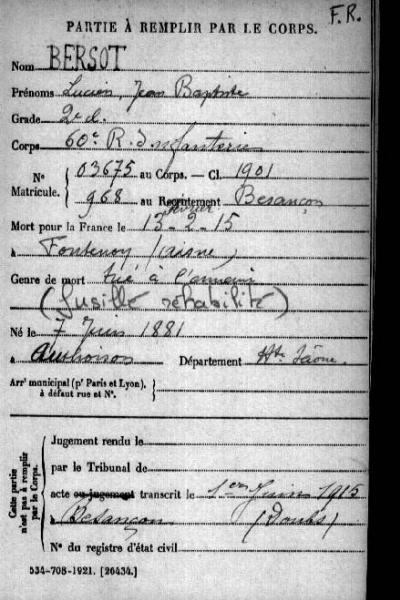 F.R.
PARTIE À REMPLIR PAR LE CORPS.
Nom BERSOT
Prénoms Lucien, Jean Baptiste
Grade 2e cl.
Corps 60e R. d'infanterie
N° 03675 au Corps. — Cl. 1901
Matricule. 968 au Recrutement Besançon
février
Mort pour la France le 13-2-15
à Fontenoy (aisne)
Genre de mort tué à l'ennemi
(fusillé réhabilité)
Né le 7 Juin 1881
à Authoison Département Hte Saône
Arrt municipal (pr Paris et Lyon),
à défaut rue et N°.
Cette partie
n'est pas à remplir
par le Corps.
Jugement rendu le
par le Tribunal de
acte ou jugement transcrit le 1er Juin 1915
à Besançon (Doubs)
N° du registre d'état civil
534-708-1921. [26434.]